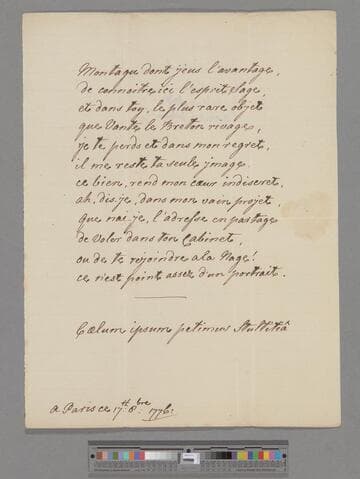 Montagu dont j'eus l'avantage,
de connoitre ici l'esprit sage,
et dans toy, le plus rare objet
que Vante le Breton rivage,
je te perds et dans mon regret,
il me reste ta seule jmage
ce bien, rend mon cœur indiscret,
ah, dis je, dans mon vain projet,
que nai je, l'adresse en partage
de Voler dans ton Cabinet,
ou de te rejoindre a la Nage!
ce n'est point assez d'un portrait.
Cœlum ipsum petimus Stultitiâ
a Paris ce 17.tt 8.bre 1776.